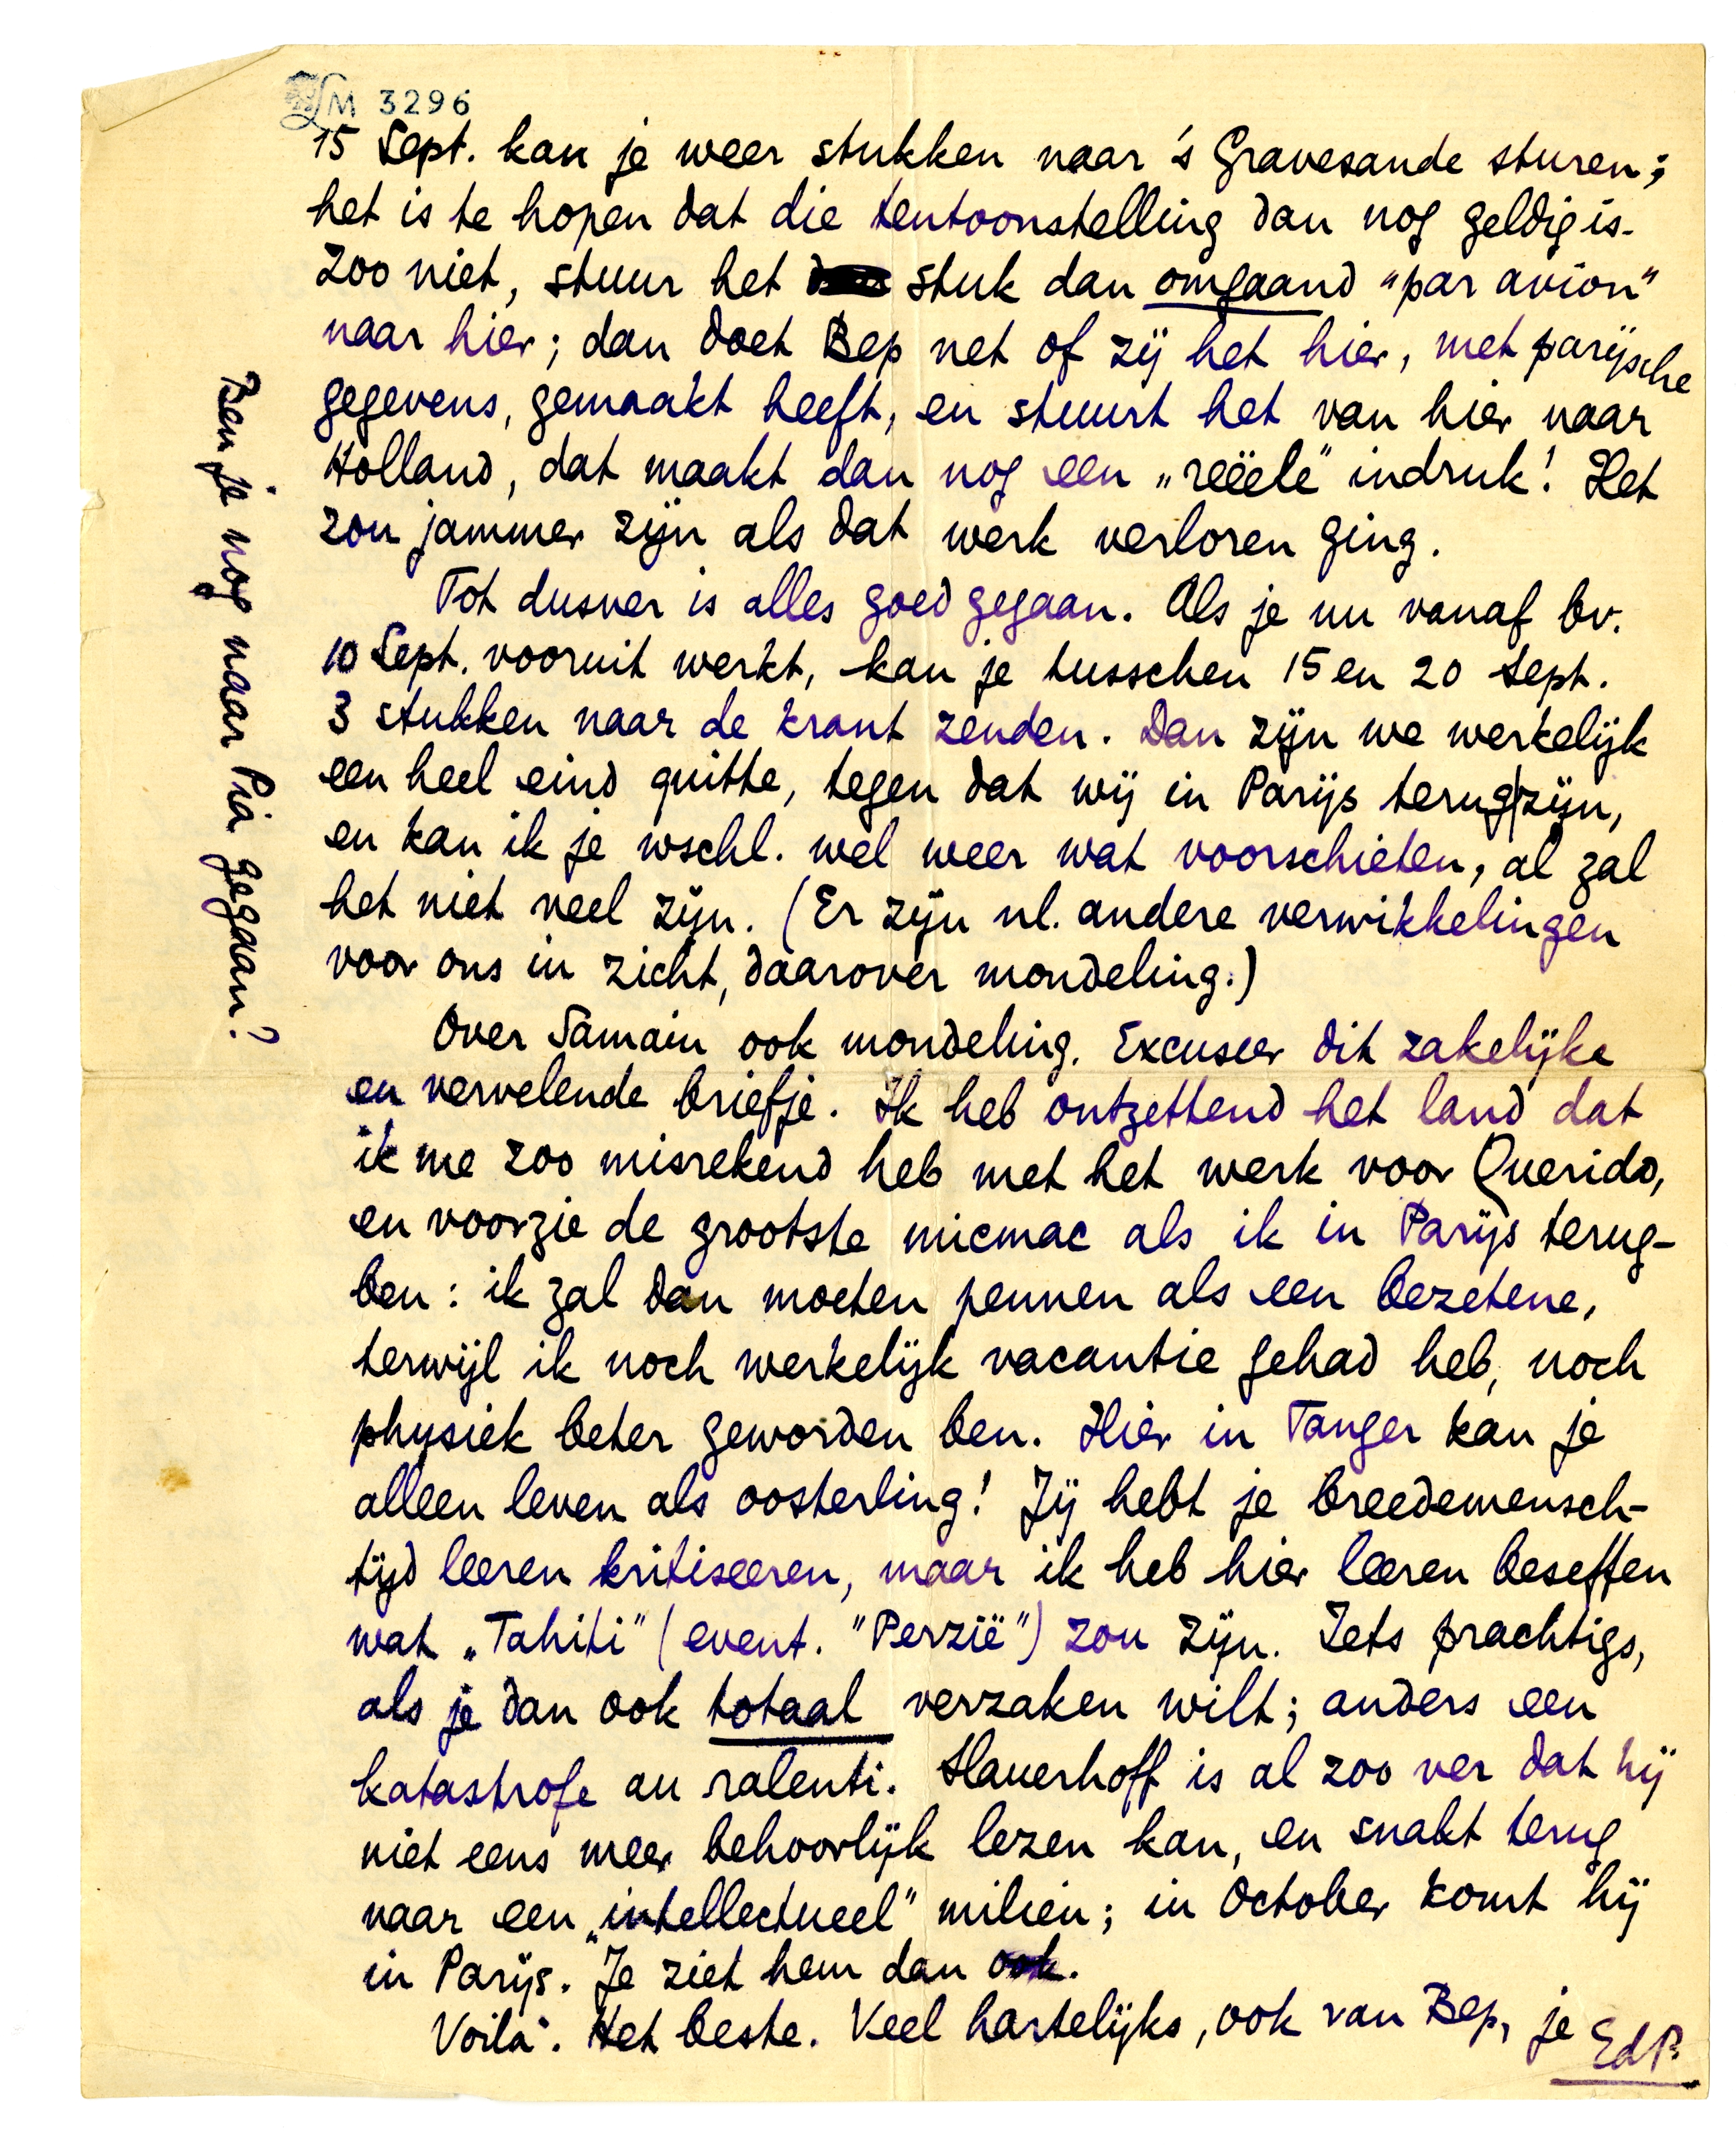 LM 3296
15 Sept. kan je weer stukken naar 's Gravesande sturen;
het is te hopen dat die tentoonstelling dan nog geldig is.
Zoo niet, stuur het stuk dan omgaand "par avion"
naar hier; dan doet Bep net of zij het hier, met parijsche
gegevens, gemaakt heeft, en stuurt het van hier naar
Holland, dat maakt dan nog een „reëele" indruk! Het
zou jammer zijn als dat werk verloren ging.
Tot dusver is alles goed gegaan. Als je nu vanaf bv.
10 Sept. vooruit werkt, kan je tusschen 15 en 20 Sept.
3 stukken naar de krant zenden. Dan zijn we werkelijk
een heel eind quitte, tegen dat wij in Parijs terug zijn,
en kan ik je wschl. wel weer wat voorschieten, al zal
het niet veel zijn. (Er zijn nl. andere verwikkelingen
voor ons in zicht, daarover mondeling.)
Over Samain ook mondeling. Excuseer dit zakelijke
en vervelende briefje. Ik heb ontzettend het land dat
ik me zoo misrekend heb met het werk voor Querido,
en voorzie de grootste micmac als ik in Parijs terug-
ben: ik zal dan moeten pennen als een bezetene,
terwijl ik noch werkelijk vacantie gehad heb, noch
physiek beter geworden ben. Hier in Tanger kan je
alleen leven als oosterling! Jij hebt je breedemensch-
tijd leeren kritiseeren, maar ik heb hier leeren beseffen
wat „Tahiti" (event. "Perzië") zou zijn. Iets prachtigs,
als je dan ook totaal verzaken wilt; anders een
katastrofe au ralenti. Slauerhoff is al zoo ver dat hij
niet eens meer behoorlijk lezen kan, en snakt terug
naar een „intellectueel" milieu; in October komt hij
in Parijs. Je ziet hem dan ook.
Voilà. Het beste. Veel hartelijks, ook van Bep, je
EdP.
Ben je nog naar Pia gegaan?